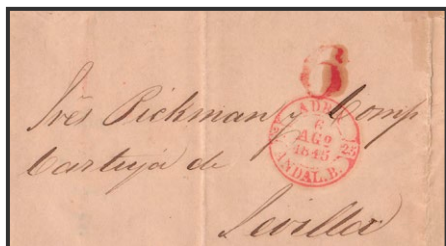 6
Sres Pickman y Comp
Cartuja de
Sevilla
6
AGO
1845
ANDAL. B.